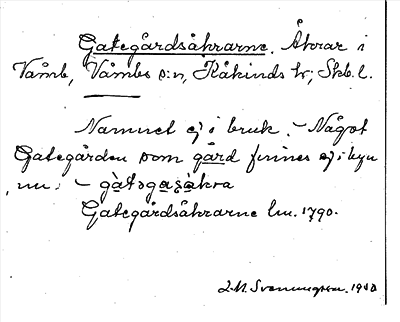 Gategårdsåkrarne. Åkrar i
Våmb, Våmbs s:n, Kåkinds hd; Skb. l.
Namnet ej i bruk. – Något
Gategården som gård finnes ej i byn
nu. – gàtǝgaʒàkra
Gategårdsåkrarne lm. 1790.